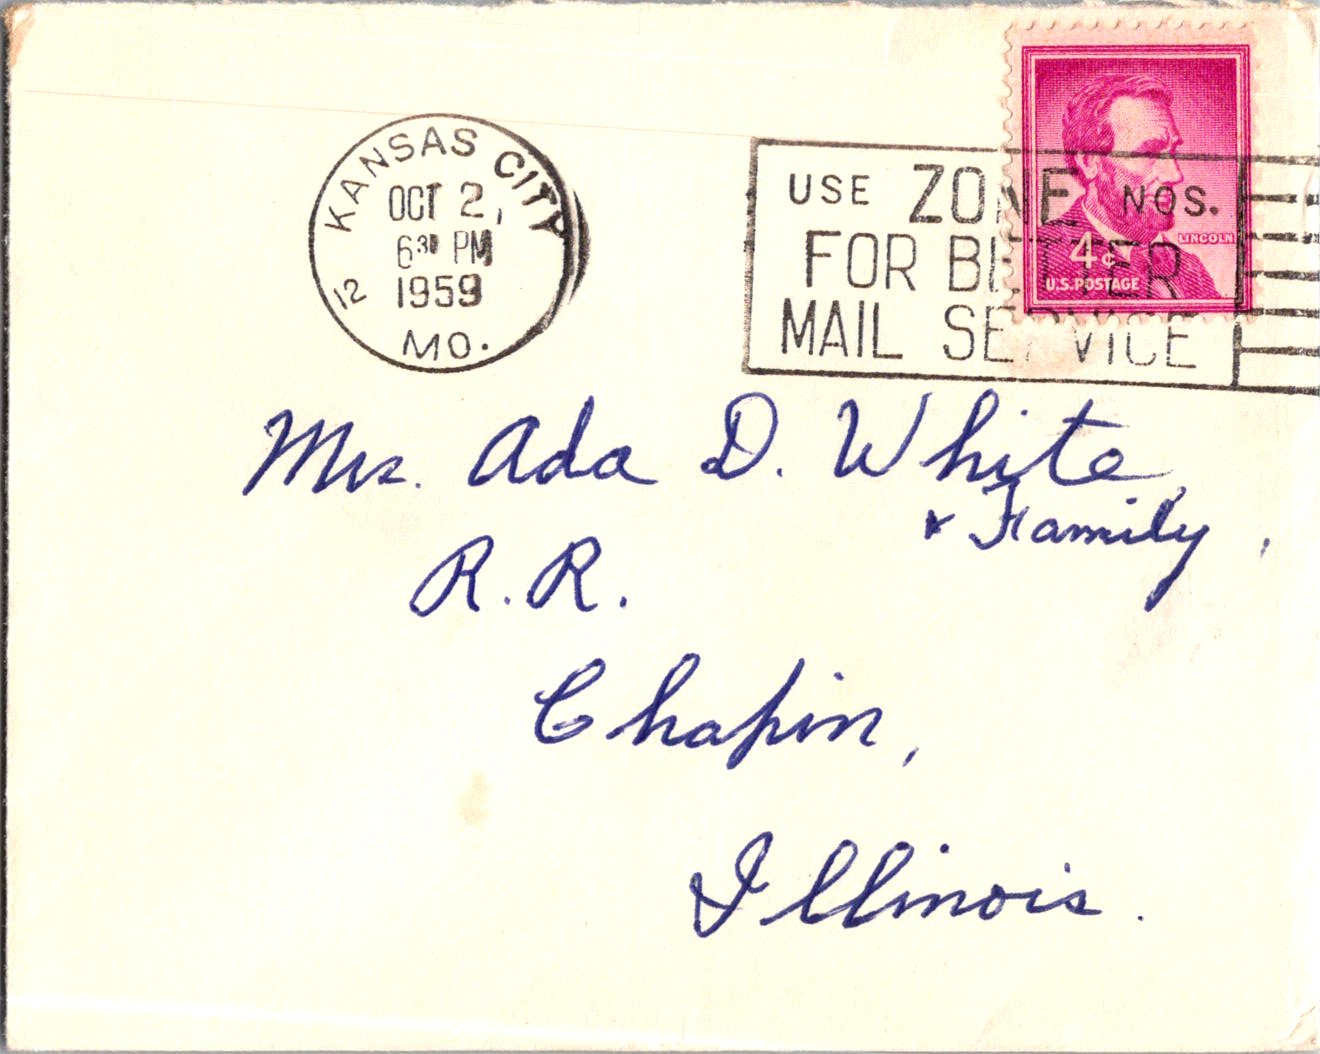 KANSAS CITY
OCT 2,
6 30 PM
1959
12
MO.
USE ZONE NOS.
FOR BETTER
MAIL SERVICE
LINCOLN
4¢
U.S. POSTAGE
Mrs. Ada D. White
& Family,
R.R.
Chapin,
Illinois.